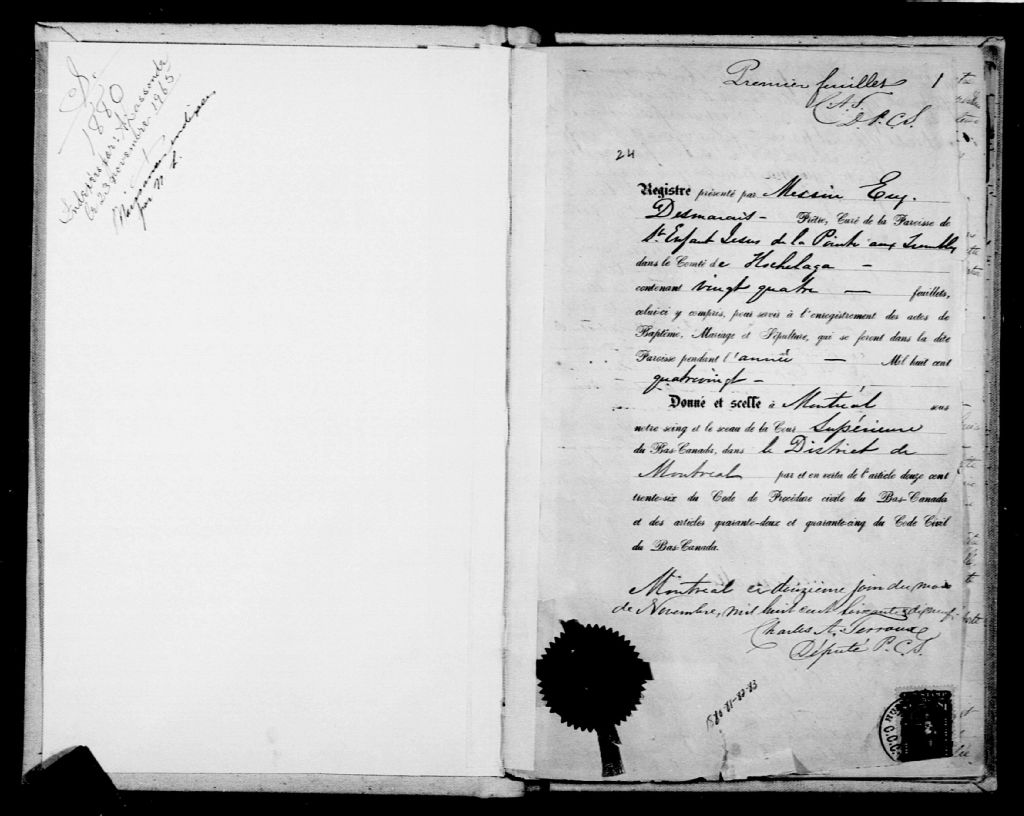 S.
1880
le 23 novembre 1965
Premier feuillet 1
C.A.T.
D.P.C.S.
24
Registre présenté par Messire Eug.
Desmarais - Prêtre, Curé de la Paroisse de
St. Enfant Jesus de la Pointe aux Trembles
dans le Comté de Hochelaga -
contenant vingt quatre - feuillets,
celui-ci y compris, pour servir à l'enregistrement des actes de
Baptême, Mariage et Sépulture, qui se feront dans la dite
Paroisse pendant l'année - Mil huit cent
quatrevingt -
Donné et scellé à Montréal sous
notre seing et le sceau de la Cour Supérieure
du Bas-Canada, dans le District de
Montreal par et en vertu de l'article douze cent
trente-six du Code de Procédure civile du Bas-Canada
et des articles quarante-deux et quarante-cinq du Code Civil
du Bas-Canada.
Montreal ce douzième jour du mois
de Novembre, mil huit cent soixante & dix neuf
Charles A. Terroux
Député P.C.S.
C.C.C.